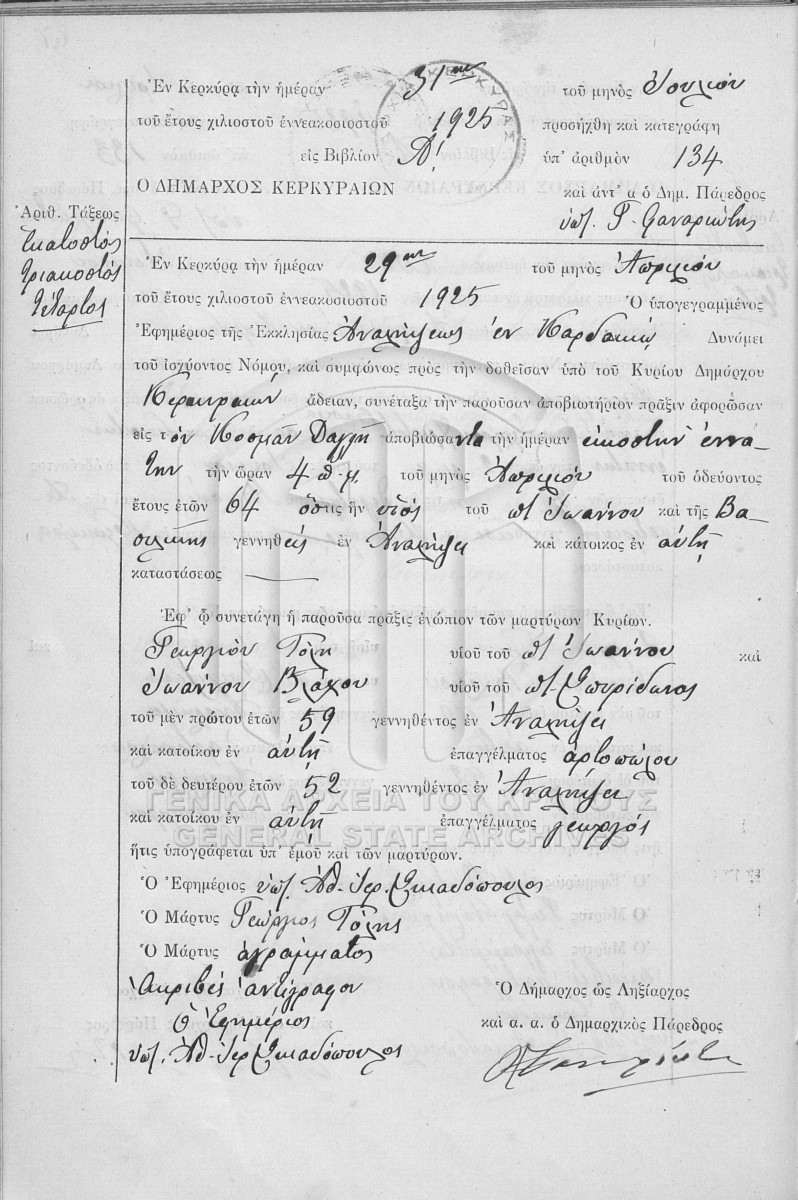 Ἐν Κερκύρᾳ τὴν ἡμέραν 31ην τοῦ μηνὸς Ἰουλίου
τοῦ ἔτους χιλιοστοῦ ἐννεακοσιοστοῦ 1925 προσήχθη καὶ κατεγράφη
εἰς Βιβλίον Α! ὑπ' ἀριθμὸν 134
Ο ΔΗΜΑΡΧΟΣ ΚΕΡΚΥΡΑΙΩΝ καὶ ἀντ' α ὁ Δημ. Πάρεδρος
Ἀριθ. Τάξεως
ὑπ. Γ.
Ἑκατοστὸς
τριακοστὸς
τέταρτος
Ἐν Κερκύρᾳ τὴν ἡμέραν 29ην τοῦ μηνὸς Ἀπριλίου
τοῦ ἔτους χιλιοστοῦ ἐννεακοσιοστοῦ 1925 Ὁ ὑπογεγραμμένος
Ἐφημέριος τῆς Ἐκκλησίας Ἀναλήψεως ἐν Καρδακίῳ Δυνάμει
τοῦ ἰσχύοντος Νόμου, καὶ συμφώνως πρὸς τὴν δοθεῖσαν ὑπὸ τοῦ Κυρίου Δημάρχου
Κερκυραίων ἄδειαν, συνέταξα τὴν παροῦσαν ἀποβιωτήριον πρᾶξιν ἀφορῶσαν
εἰς τὸν Κοσμᾶν ἀποβιώσαντα τὴν ἡμέραν εἰκοστὴν ἐννά-
την τὴν ὥραν 4 π.μ. τοῦ μηνὸς Ἀπριλίου τοῦ ὁδεύοντος
ἔτους ἐτῶν 64 ὅστις ἦν υἱὸς τοῦ πτ Ἰωάννου καὶ τῆς Βα-
σιλικῆς γεννηθεὶς ἐν Ἀναλήψει καὶ κάτοικος ἐν αὐτῇ
καταστάσεως
Ἐφ' ᾧ συνετάγη ἡ παροῦσα πρᾶξις ἐνώπιον τῶν μαρτύρων Κυρίων.
Γεωργίου Τόλη υἱοῦ τοῦ πτ Ἰωάννου καὶ
Ἰωάννου Βλάχου υἱοῦ τοῦ πτ Σπυρίδωνος
τοῦ μὲν πρώτου ἐτῶν 59 γεννηθέντος ἐν Ἀναλήψει
καὶ κατοίκου ἐν αὐτῇ ἐπαγγέλματος ἀρτοπώλου
τοῦ δὲ δευτέρου ἐτῶν 52 γεννηθέντος ἐν Ἀναλήψει
ΓΕΝΙΚΑ ΑΡΧΕΙΑ ΤΟΥ ΚΡΑΤΟΥΣ
καὶ κατοίκου ἐν αὐτῇ ἐπαγγέλματος γεωργὸς
GENERAL STATE ARCHIVES
ἥτις ὑπογράφεται ὑπ' ἐμοῦ καὶ τῶν μαρτύρων.
Ὁ Ἐφημέριος ὑπ. Ἀθ. Ἱερ.
Ὁ Μάρτυς Γεώργιος Τόλης
Ὁ Μάρτυς ἀγράμματος
Ἀκριβὲς ἀντίγραφον
Ὁ Ἐφημέριος
ὑπ. Ἀθ. Ἱερ.
Ὁ Δήμαρχος ὡς Ληξίαρχος
καὶ α. α. ὁ Δημαρχικὸς Πάρεδρος